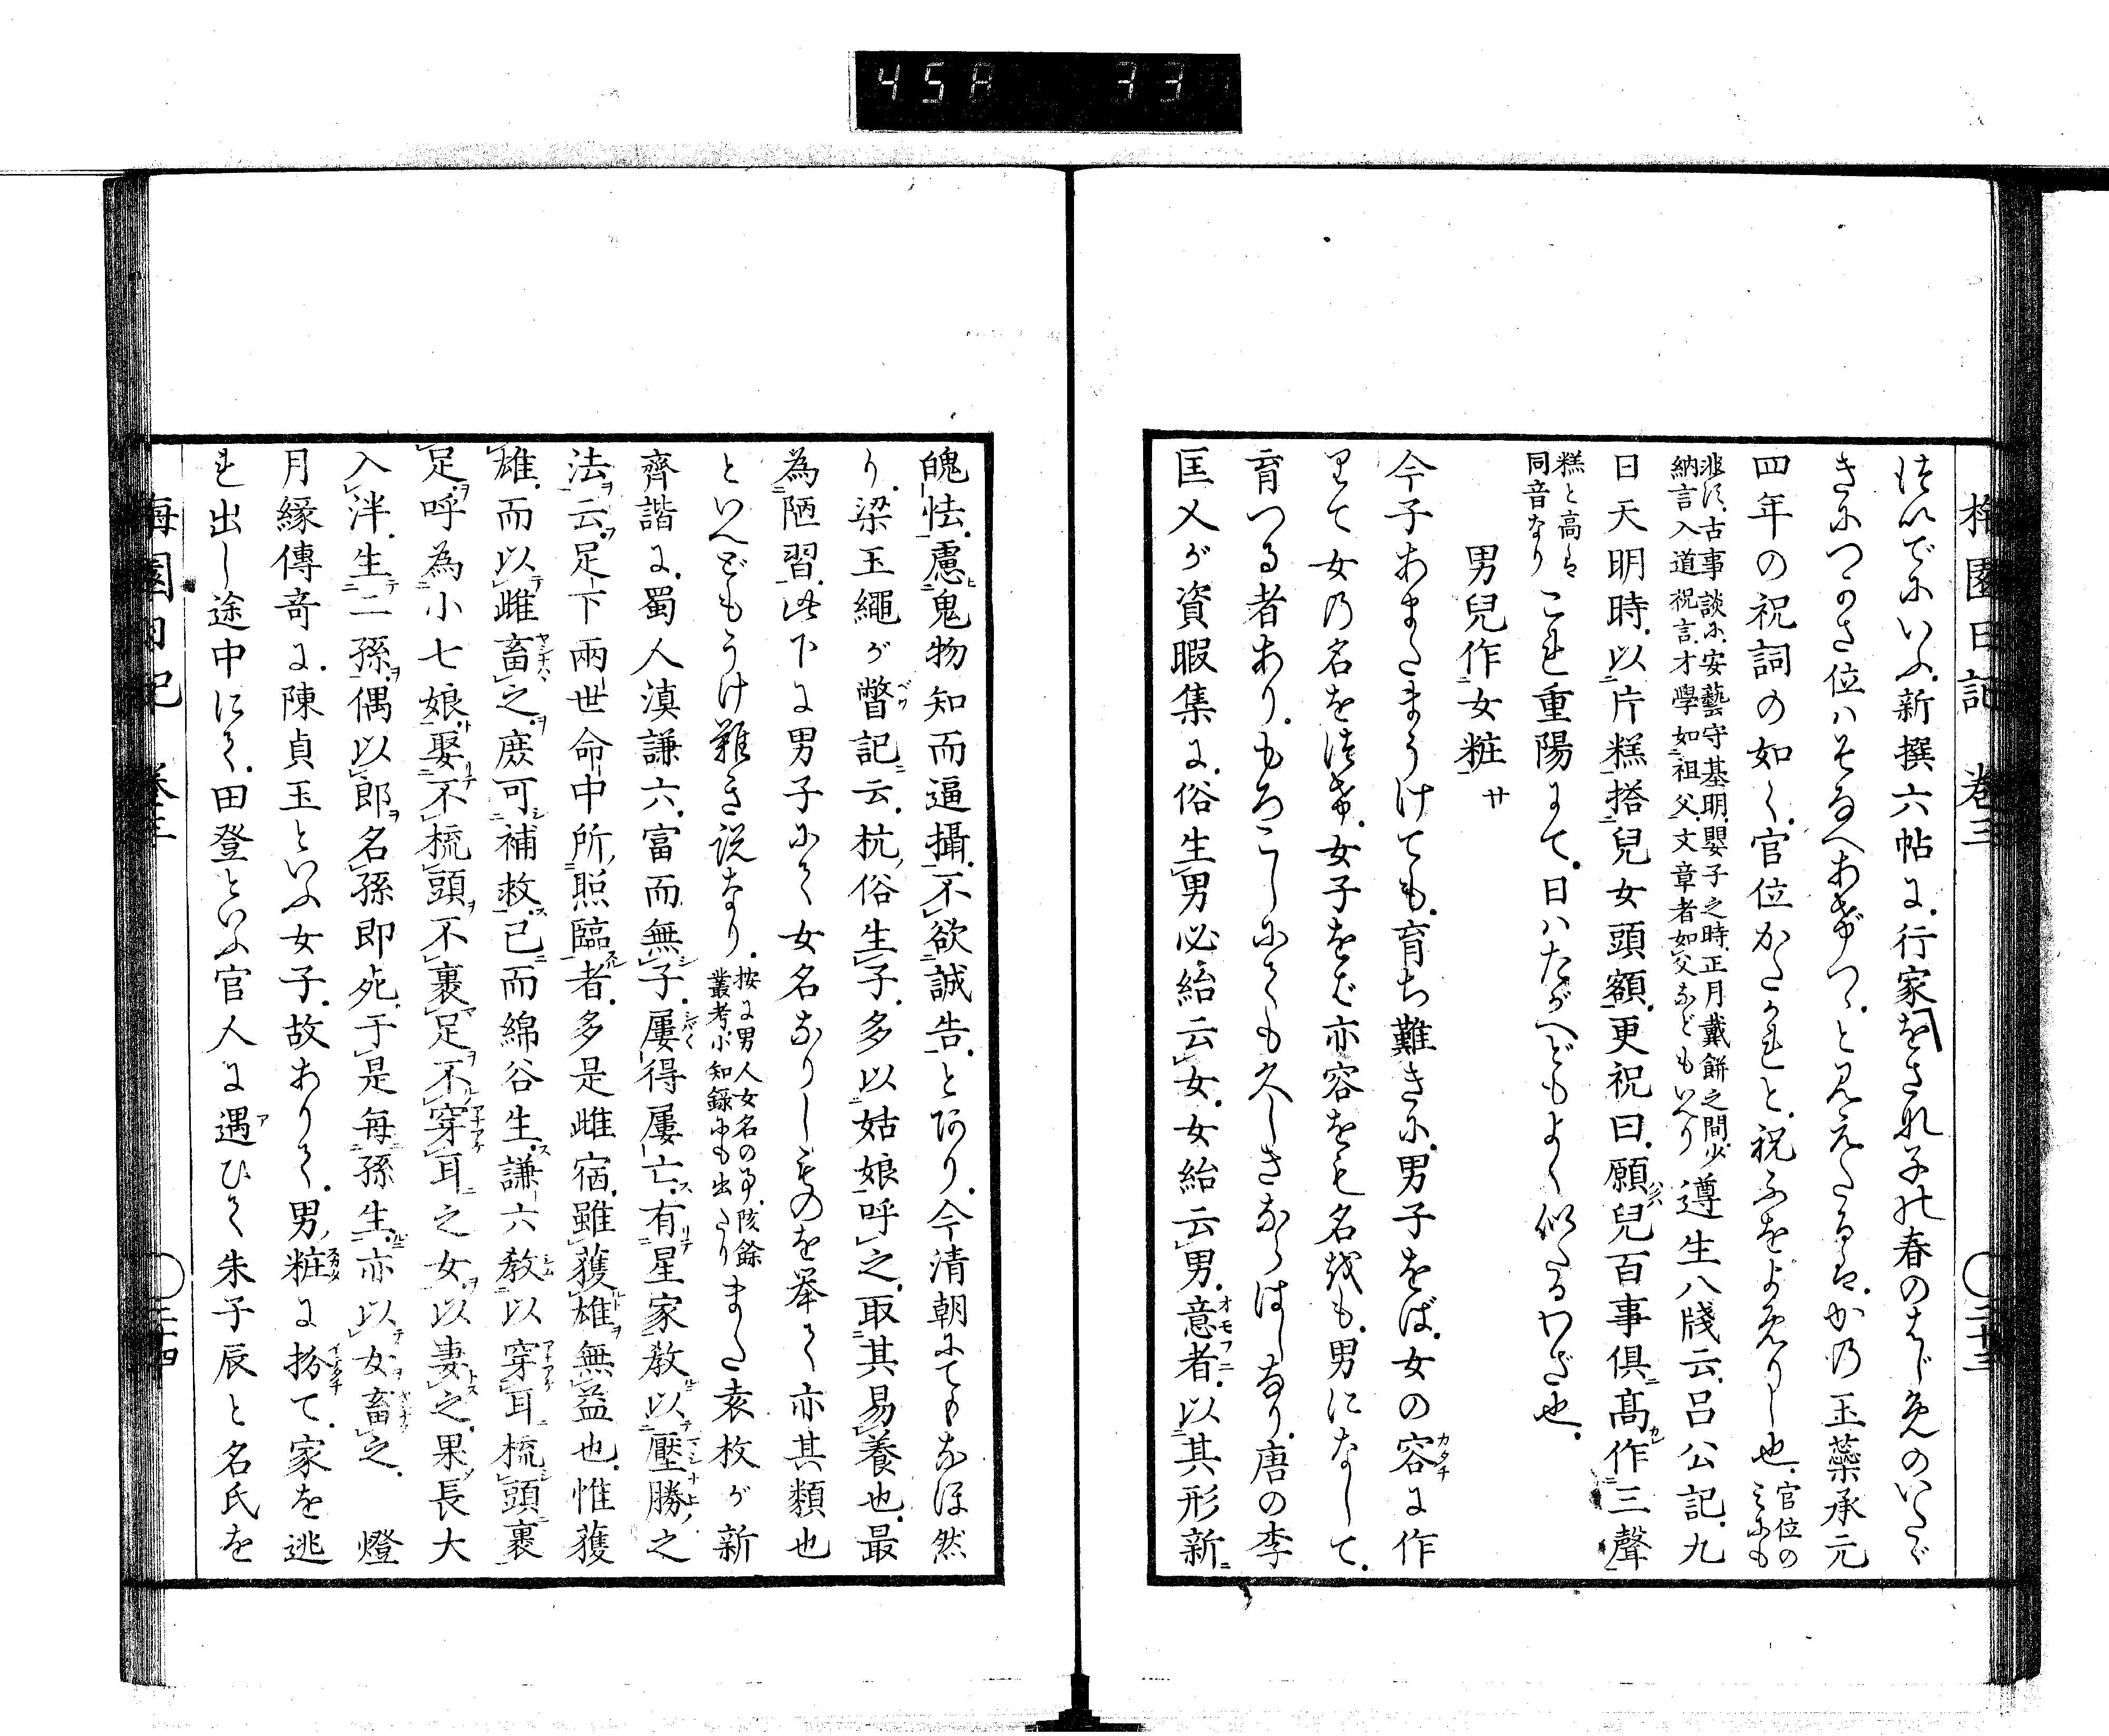 梅園日記 卷三 〇二十三
ほいでにいふ、新撰六帖に、行家「をさな子の春のはじめのいたゞ
きにつかさ位はそなへあげつゝと見えたるは、かの玉蘂承元
四年の祝詞の如く、官位かたかれと、祝ふをよめりし也、官位のことにも
非ず、古事談に、安藝守基明、嬰子之時、正月戴餅之間、少納言入道祝言、才學如祖父、文章者如父などもいへり 遵生八牋云、呂公記、九
日天明時、以片糕搭兒女頭額、更祝曰、願兒百事俱高作三聲
糕と高は同音なり これ重陽にて、日はたがへどもよく似たるわざ也、
男兒作女粧 廿
今子あまたまうけても、育ち難きに、男子をば、女の容に作
りて女の名をほせ、女子をば亦容をも名をも、男になして、
育つる者あり、もろこしにても久しきならはしなり、唐の李
匡乂が資暇集に、俗生男必紿云女、女紿云男、意者、以其形新
魄怯、慮鬼物知而逼攝、不欲誠告、とあり、今清朝にてもなほ然
り、梁玉繩が瞥記云、杭俗生子、多以姑娘呼之、取其易養也、最
為陋習、此下に男子にて女名なりしものを擧て亦其類也
といへどもうけ難き説なり、按に男人女名の事、陔餘叢考、小知録にも出たり また袁枚が新
齊諧に、蜀人滇謙六、富而無子、屢得屢亡、有星家教以壓勝之
法云、足下兩世命中所照臨者、多是雌宿、雖獲雄無益也、惟獲
雄、而以雌畜之、庶可補救、已而綿谷生、謙六教以穿耳梳頭裹
足、呼為小七娘、娶不梳頭不裹足不穿耳之女、以妻之、果長大
入泮、生二孫、偶以郎名孫即死、于是每孫生、亦以女畜之、 燈
月縁傳奇に、陳貞玉といふ女子、故ありて、男粧に扮て、家を逃
れ出し途中にて、田登といふ官人に遇ひて朱子辰と名氏を
梅園日記 卷三 〇二十四